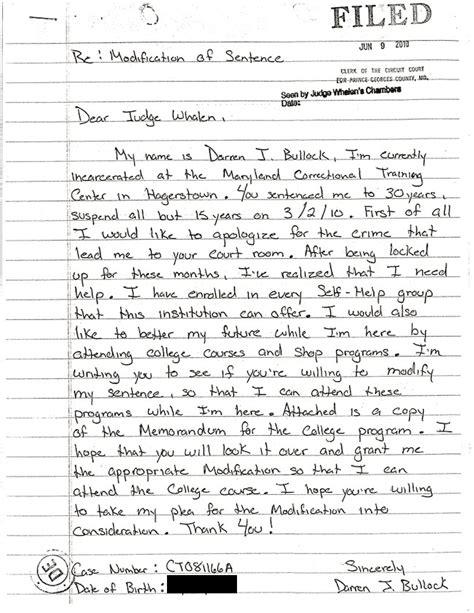 FILED
JUN 9 2010
Re: Modification of Sentence
CLERK OF THE CIRCUIT COURT
FOR PRINCE GEORGES COUNTY, MD.
Seen by Judge Whalen's Chambers
Date:
Dear Judge Whalen,
My name is Darren J. Bullock, I'm currently
incarcerated at the Maryland Correctional Training
Center in Hagerstown. You sentenced me to 30 years,
suspend all but 15 years on 3/2/10. First of all
I would like to apologize for the crime that
lead me to your court room. After being locked
up for these months, I've realized that I need
help. I have enrolled in every Self-Help group
that this institution can offer. I would also
like to better my future while I'm here by
attending college courses and Shop programs. I'm
writing you to see if you're willing to modify
my sentence, so that I can attend these
programs while I'm here. Attached is a copy
of the Memorandum for the College program. I
hope that you will look it over and grant me
the appropriate Modification so that I can
attend the College course. I hope you're willing
to take my plea for the Modification into
Consideration. Thank You!
Case Number: CT081166A
Sincerely
Date of Birth:
Darren J. Bullock